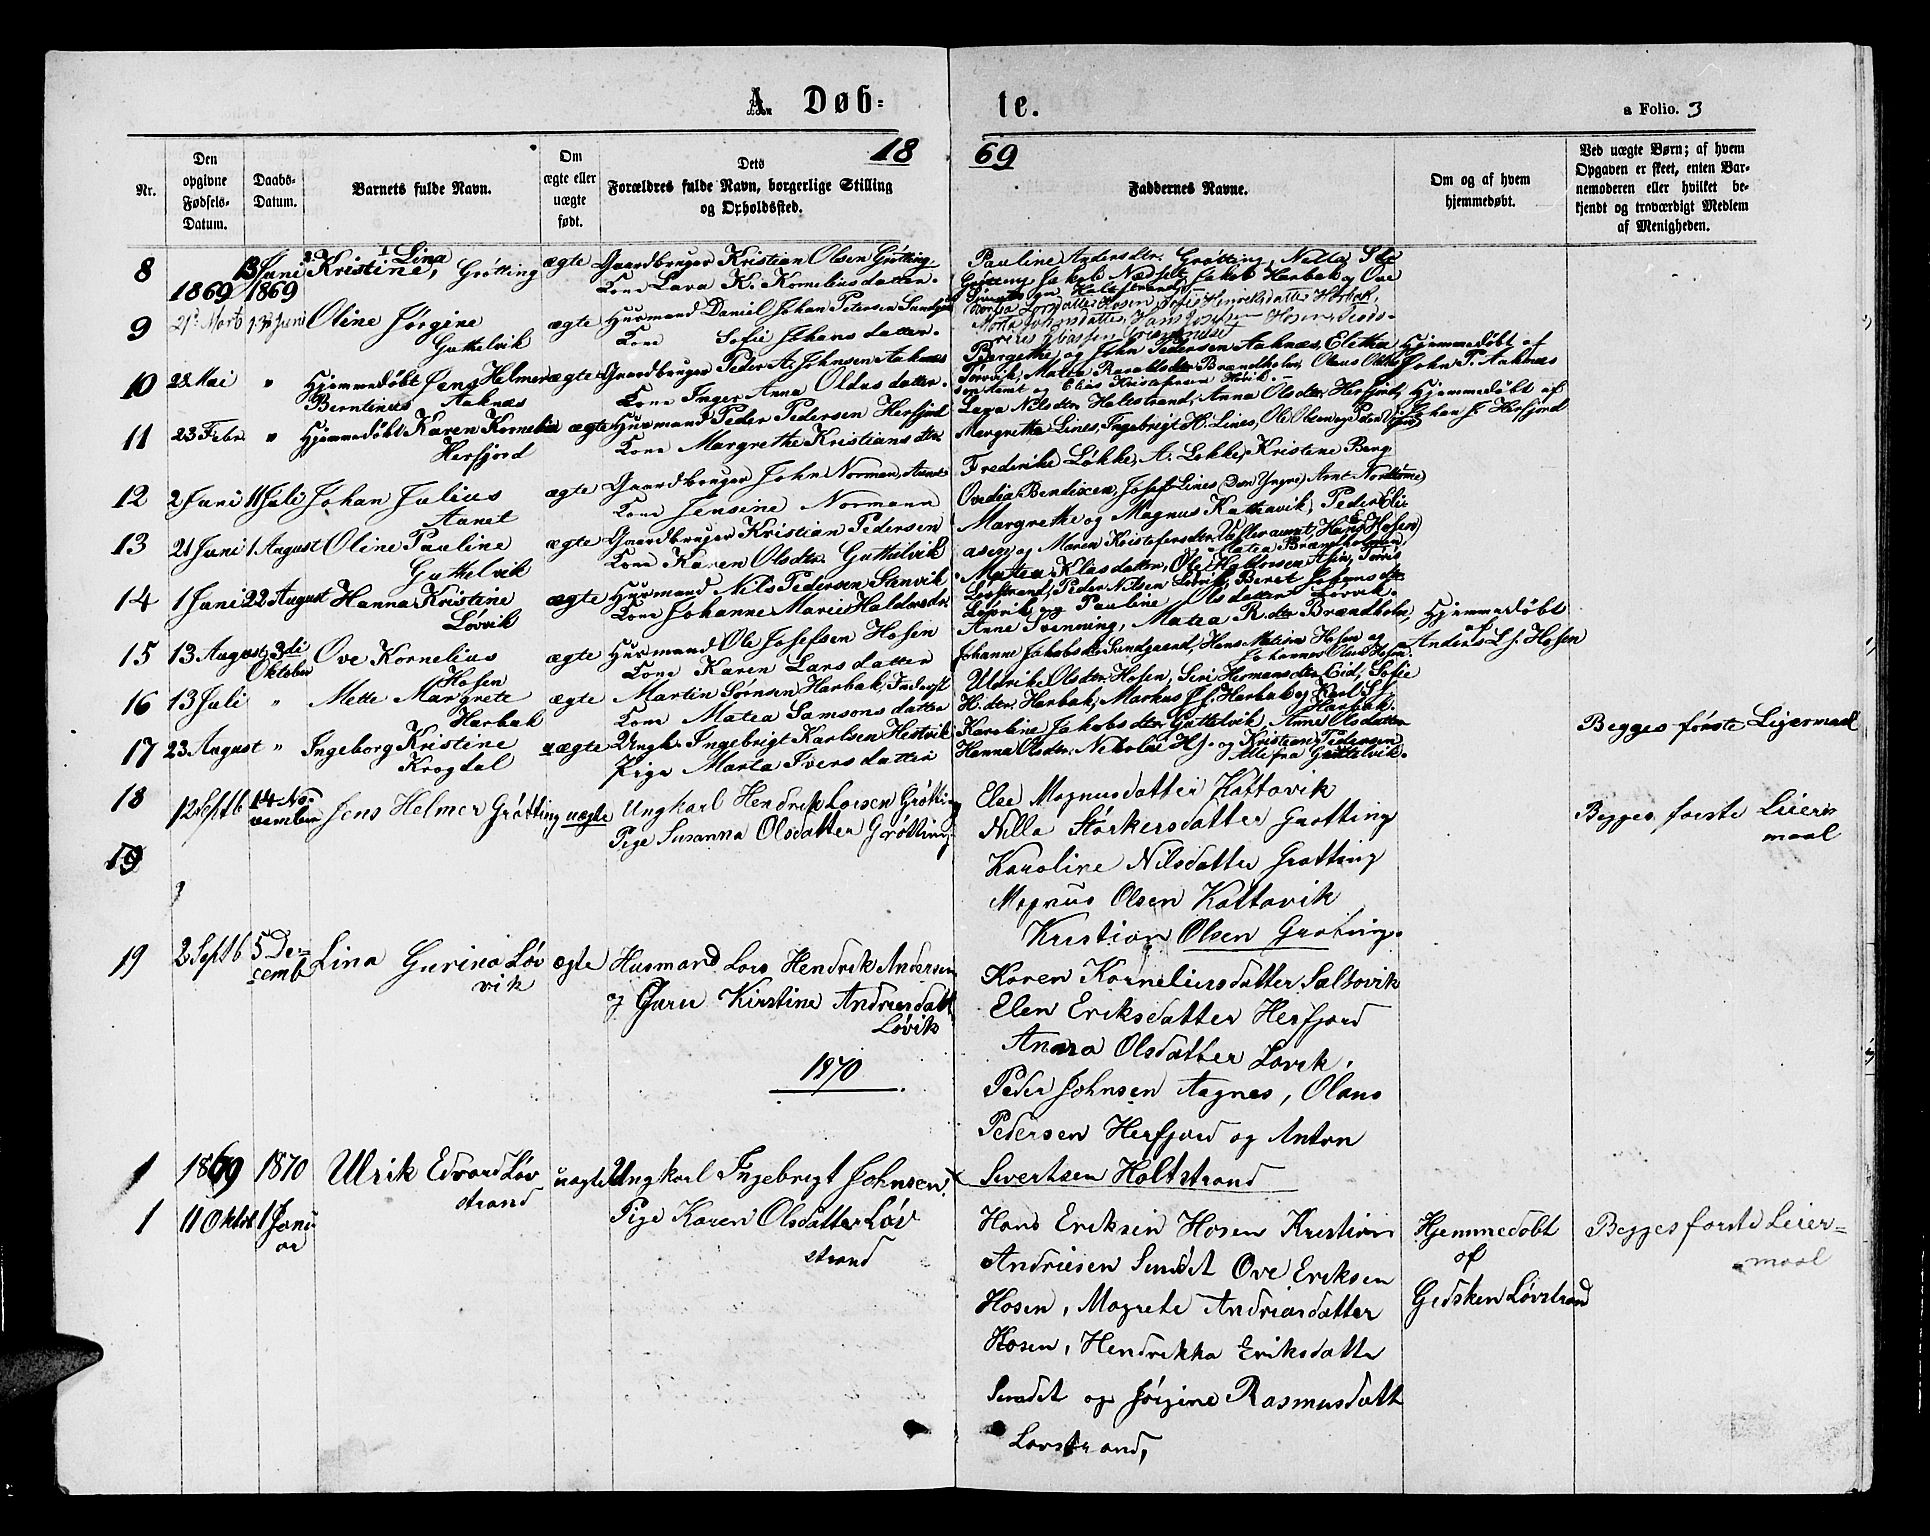 A. Døb-
te.
a Folio. 3
18
69
Nr.
Den
opgivne
Fødsels-
Datum.
Daabs-
Datum.
Barnets fulde Navn.
Om
ægte eller
uægte
født.
Dets
Forældres fulde Navn, borgerlige Stilling
og Opholdssted.
Faddernes Navne.
Om og af hvem
hjemmedøbt.
Ved uægte Børn; af hvem
Opgaven er skeet, enten Bar-
nemoderen eller hvilket be-
kjendt og troværdigt Medlem
af Menigheden.
8
1869
13 Juni
1869
Lina
Kristine, Grötting
ægte
Gaardbruger Kristian Olsen Grötting
Kone Lava K. Korneliusdatter.
Pauline Andersdtr. Grøtting, Nilla
Jakob Harbak og Ove
9
21de Marts
13de Juni
Oline Jørgine
Guttelvik
ægte
Husmand Daniel Johan Petersen
Kone Sofie Johansdatter.
10
28 Mai
"
Hjemmedøbt Jens Helmer
Berntinus Aaknæs
ægte
Gaardbruger Peder A. Johnsen Aaknæs
Kone Inger Anna Oldusdatter.
Bergethe og John Pedersen Aaknæs,
Hjemmedøbt af
John P. Aaknæs
11
23 Febr.
"
Hjemmedøbt Karen Kornelia
Herfjord
ægte
Husmand Peder Pedersen Herfjord
Kone Margrethe Kristiansdtr.
Lava Nilsdtr. Halestrand, Anna Olsdtr. Herfjord,
Margrethe Lines, Ingebrigt H. Lines, Ole Olsen og Peder
Hjemmedøbt af
Johan J. Herfjord
12
2 Juni
11 Juli
Johan Julius
Aunet
ægte
Gaardbruger John Norman, Aunet
Kone Jensine Normann
Frederike Løkke, A. Løkke, Kristine Berg
Ovedia Bendixen, Josef Lines (Den Yngre) Arnt
13
21 Juni
1 August
Oline Pauline
Guttelvik
ægte
Gaardbruger Kristian Pedersen
Kone Karen Olsdtr. Guttelvik
Margrethe og Magnus Kattavik, Peder Eli-
asen og Maren Kristofersdtr.
14
1 Juni
22 August
Hanna Kristine
Løvik
ægte
Husmand Nils Pedersen Stenvik
Kone Johanne Marie Haldorsdtr.
Matea Klasdatter, Ole Haldorsen
Peder Nilsen Løvik, Beret Johansdtr.
Løvik og Pauline Olsdatter Løvik.
15
13 August
3die
Oktober
Ove Kornelius
Hosen
ægte
Husmand Ole Josefsen Hosen
Kone Karen Larsdatter
Anne Svenning, Matea R.dtr. Brændholm,
Johanne Jakobsdtr. Sundgaard, Hans Matias Hosen og
Johannes Olsen Hosen.
Hjemmedøbt
af
Anders L J. Hosen
16
13 Juli
"
Mette Margrete
Harbak
ægte
Martin Sørnsen Harbak, Inderst
Kone Matea Samsonsdatter
Uldrikke Olsdtr. Hosen, Siri Hermansdtr. Eid, Sofie
H.dtr. Harbak, Markus J. Harbak og Karl S.
Harbak.
17
23 August
"
Ingeborg Kristine
Krogdal
uægte
Ungk. Ingebrigt Karlsen Hestvik
Pige Marta Iversdatter
Karoline Jakobsdtr. Guttelvik, Anne Olsdatter
Hanna Olsdtr. Nikolai Hj. og Kristian Pedersen
Alle fra Guttelvik.
Begges første Lejermaal
18
12 Septb
14 No-
vember
Jens Helmer Grøtting
uægte
Ungkarl Hendrik Larsen Grøtting
Pige Susanna Olsdatter Grøtting
Else Magnusdatter Kattavik
Nilla Størkersdatter Grøtting
Karoline Nilsdatter Grøtting
Magnus Olsen Kattavik
Kristian Olsen Grøting.
Begges første Leier-
maal
19
19
2 Septb
5 De-
cemb
Lina Gurina Løv
vik
ægte
Husmand Lars Hendrik Andersen
og Guru Kirstine Andreasdatt
Løvik
Karen Korneliusdatter Saltvik
Elen Eriksdatter Herfjord
Anna Olsdatter Løvik,
Peder Johnsen Aagnes, Olaus
Pedersen Herfjord og Anton
Sivertsen Holtstrand
1870
1
1869
1870
1
11 Oktob
1 Janu
ar
Ulrik Edvard Løv
strand
uægte
Ungkarl Ingebrigt Johnsen
Pige Karen Olsdatter Løv
strand
Hans Eriksen Hosen Kristian
Andriesen Sundet Ove Eriksen
Hosen, Magrete Andriasdatter
Hosen, Hendrikka Eriksdatte
Sundet og Jørgine Rasmusdatt
Lovstrand,
Hjemmedøbt
af
Gidsken Løvstrand
Begges første Leier-
maal